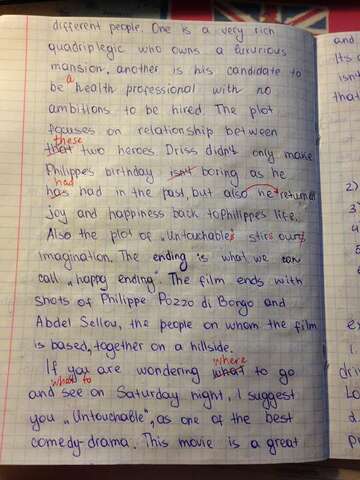 different people. One is a very rich
quadriplegic who owns a luxurious
mansion, another is his candidate to
a
be health professional with no
ambitions to be hired. The plot
focuses on relationship between
these
that two heroes. Driss didn't only make
Philippe's birthday isn't boring as he
had
has had in the past, but also he returned
joy and happiness back to Philippe's life.
Also the plot of „Untouchables" stirs ours
imagination. The ending is what we can
call „happy ending". The film ends with
shots of Philippe Pozzo di Borgo and
Abdel Sellou, the people on whom the film
is based, together on a hillside.
where
If you are wondering what to go
what to
and see on Saturday night, I suggest
you „Untouchable", as one of the best
comedy-drama. This movie is a great
and
Its
isn
that
2)
3
4
5
e
dri
Lo